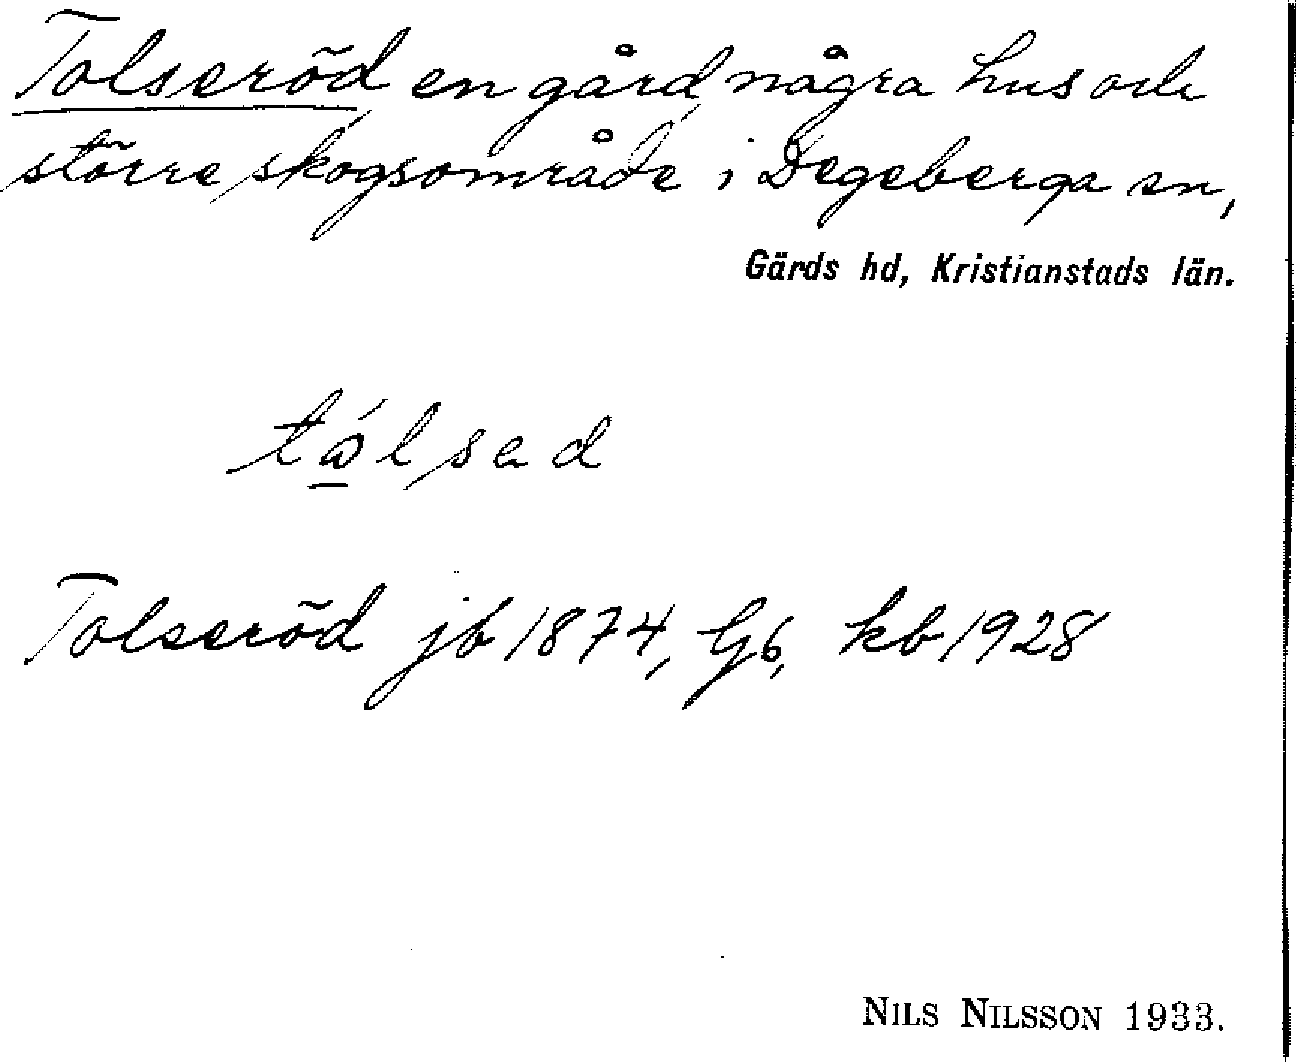 Tolseröd en gård, några hus och
större skogsområde i Degeberga sn,
Gärds hd, Kristianstads län.
Tolseröd jb 1874, G6, kb 1928
NILS NILSSON 1933.